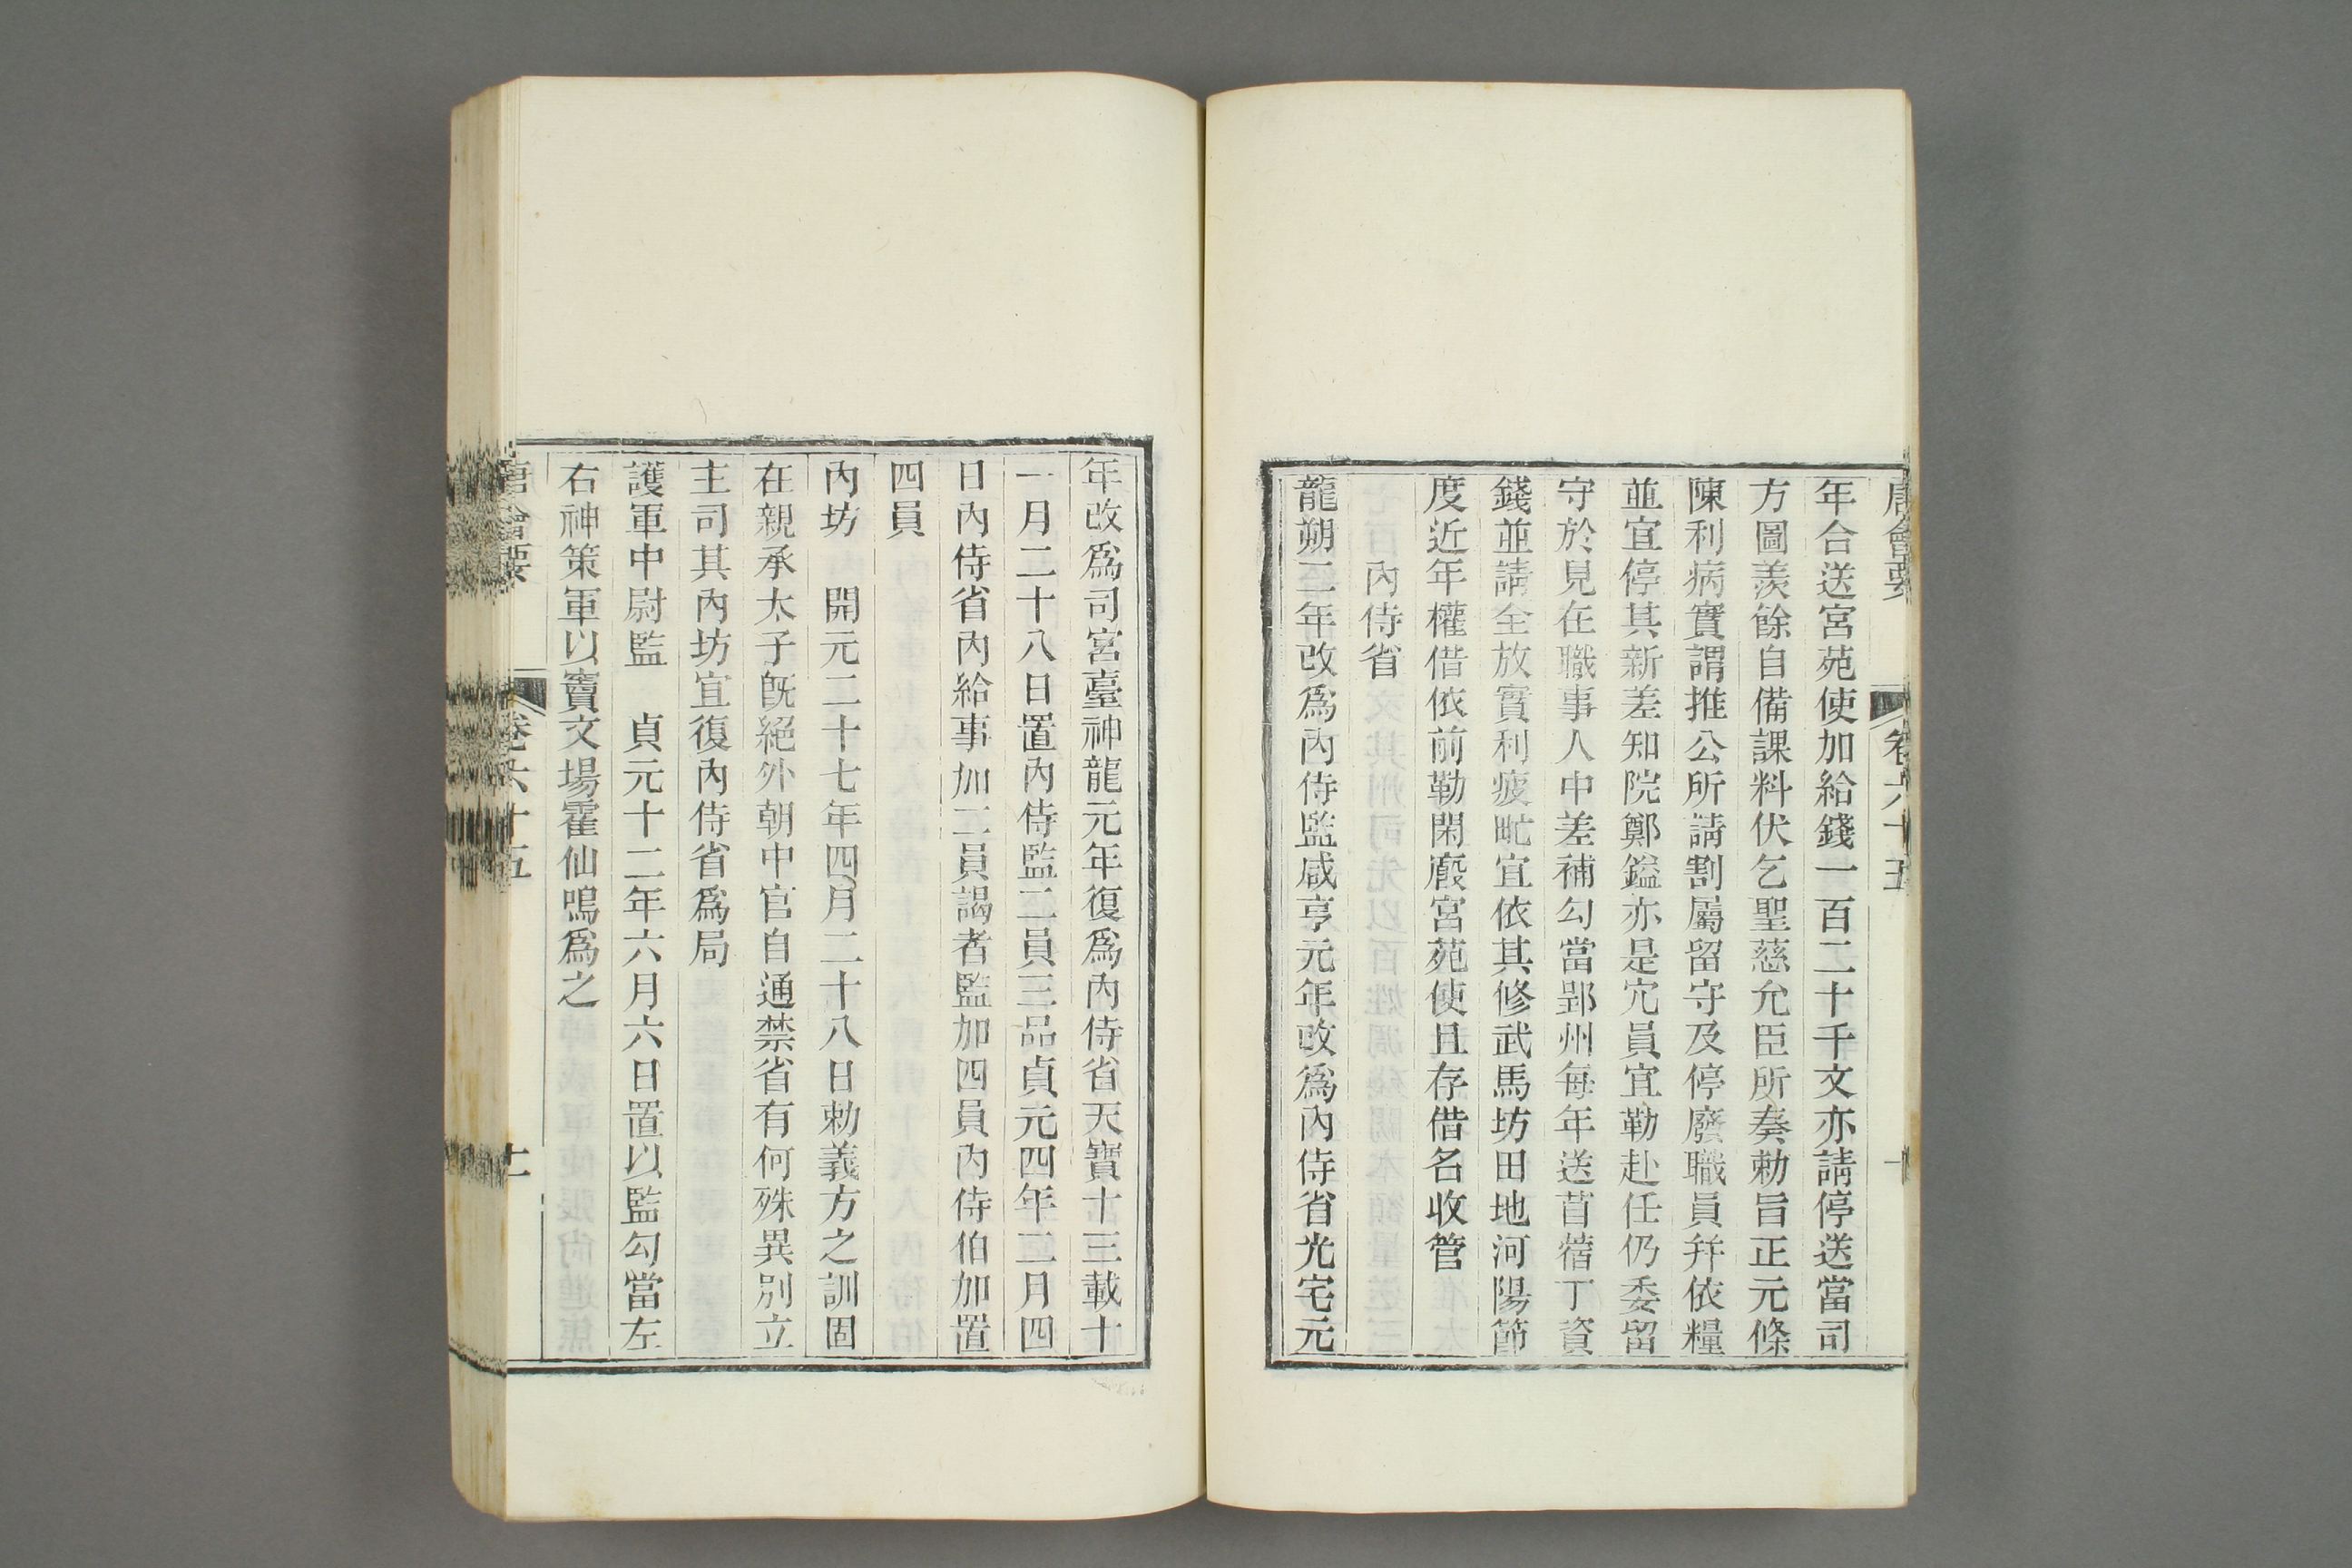 唐會要 卷六十五 十
年合送宮苑使加給錢一百二十千文亦請停送當司
方圖羨餘自備課料伏乞聖慈允臣所奏勅旨正元條
陳利病實謂推公所請割屬留守及停廢職員幷依糧
並宜停其新差知院鄭鎰亦是宂員宜勒赴任仍委留
守於見在職事人中差補勾當郢州每年送苜蓿丁資
錢並請全放實利疲甿宜依其修武馬坊田地河陽節
度近年權借依前勒閑廄宮苑使且存借名收管
內侍省
龍朔二年改爲內侍監咸亨元年改爲內侍省光宅元
年改爲司宮臺神龍元年復爲內侍省天寶十三載十
一月二十八日置內侍監二員三品貞元四年二月四
日內侍省內給事加二員謁者監加四員內侍伯加置
四員
內坊 開元二十七年四月二十八日勅義方之訓固
在親承太子旣絕外朝中官自通禁省有何殊異別立
主司其內坊宜復內侍省爲局
護軍中尉監 貞元十二年六月六日置以監勾當左
右神策軍以竇文場霍仙鳴爲之
唐會要 卷六十五 十一